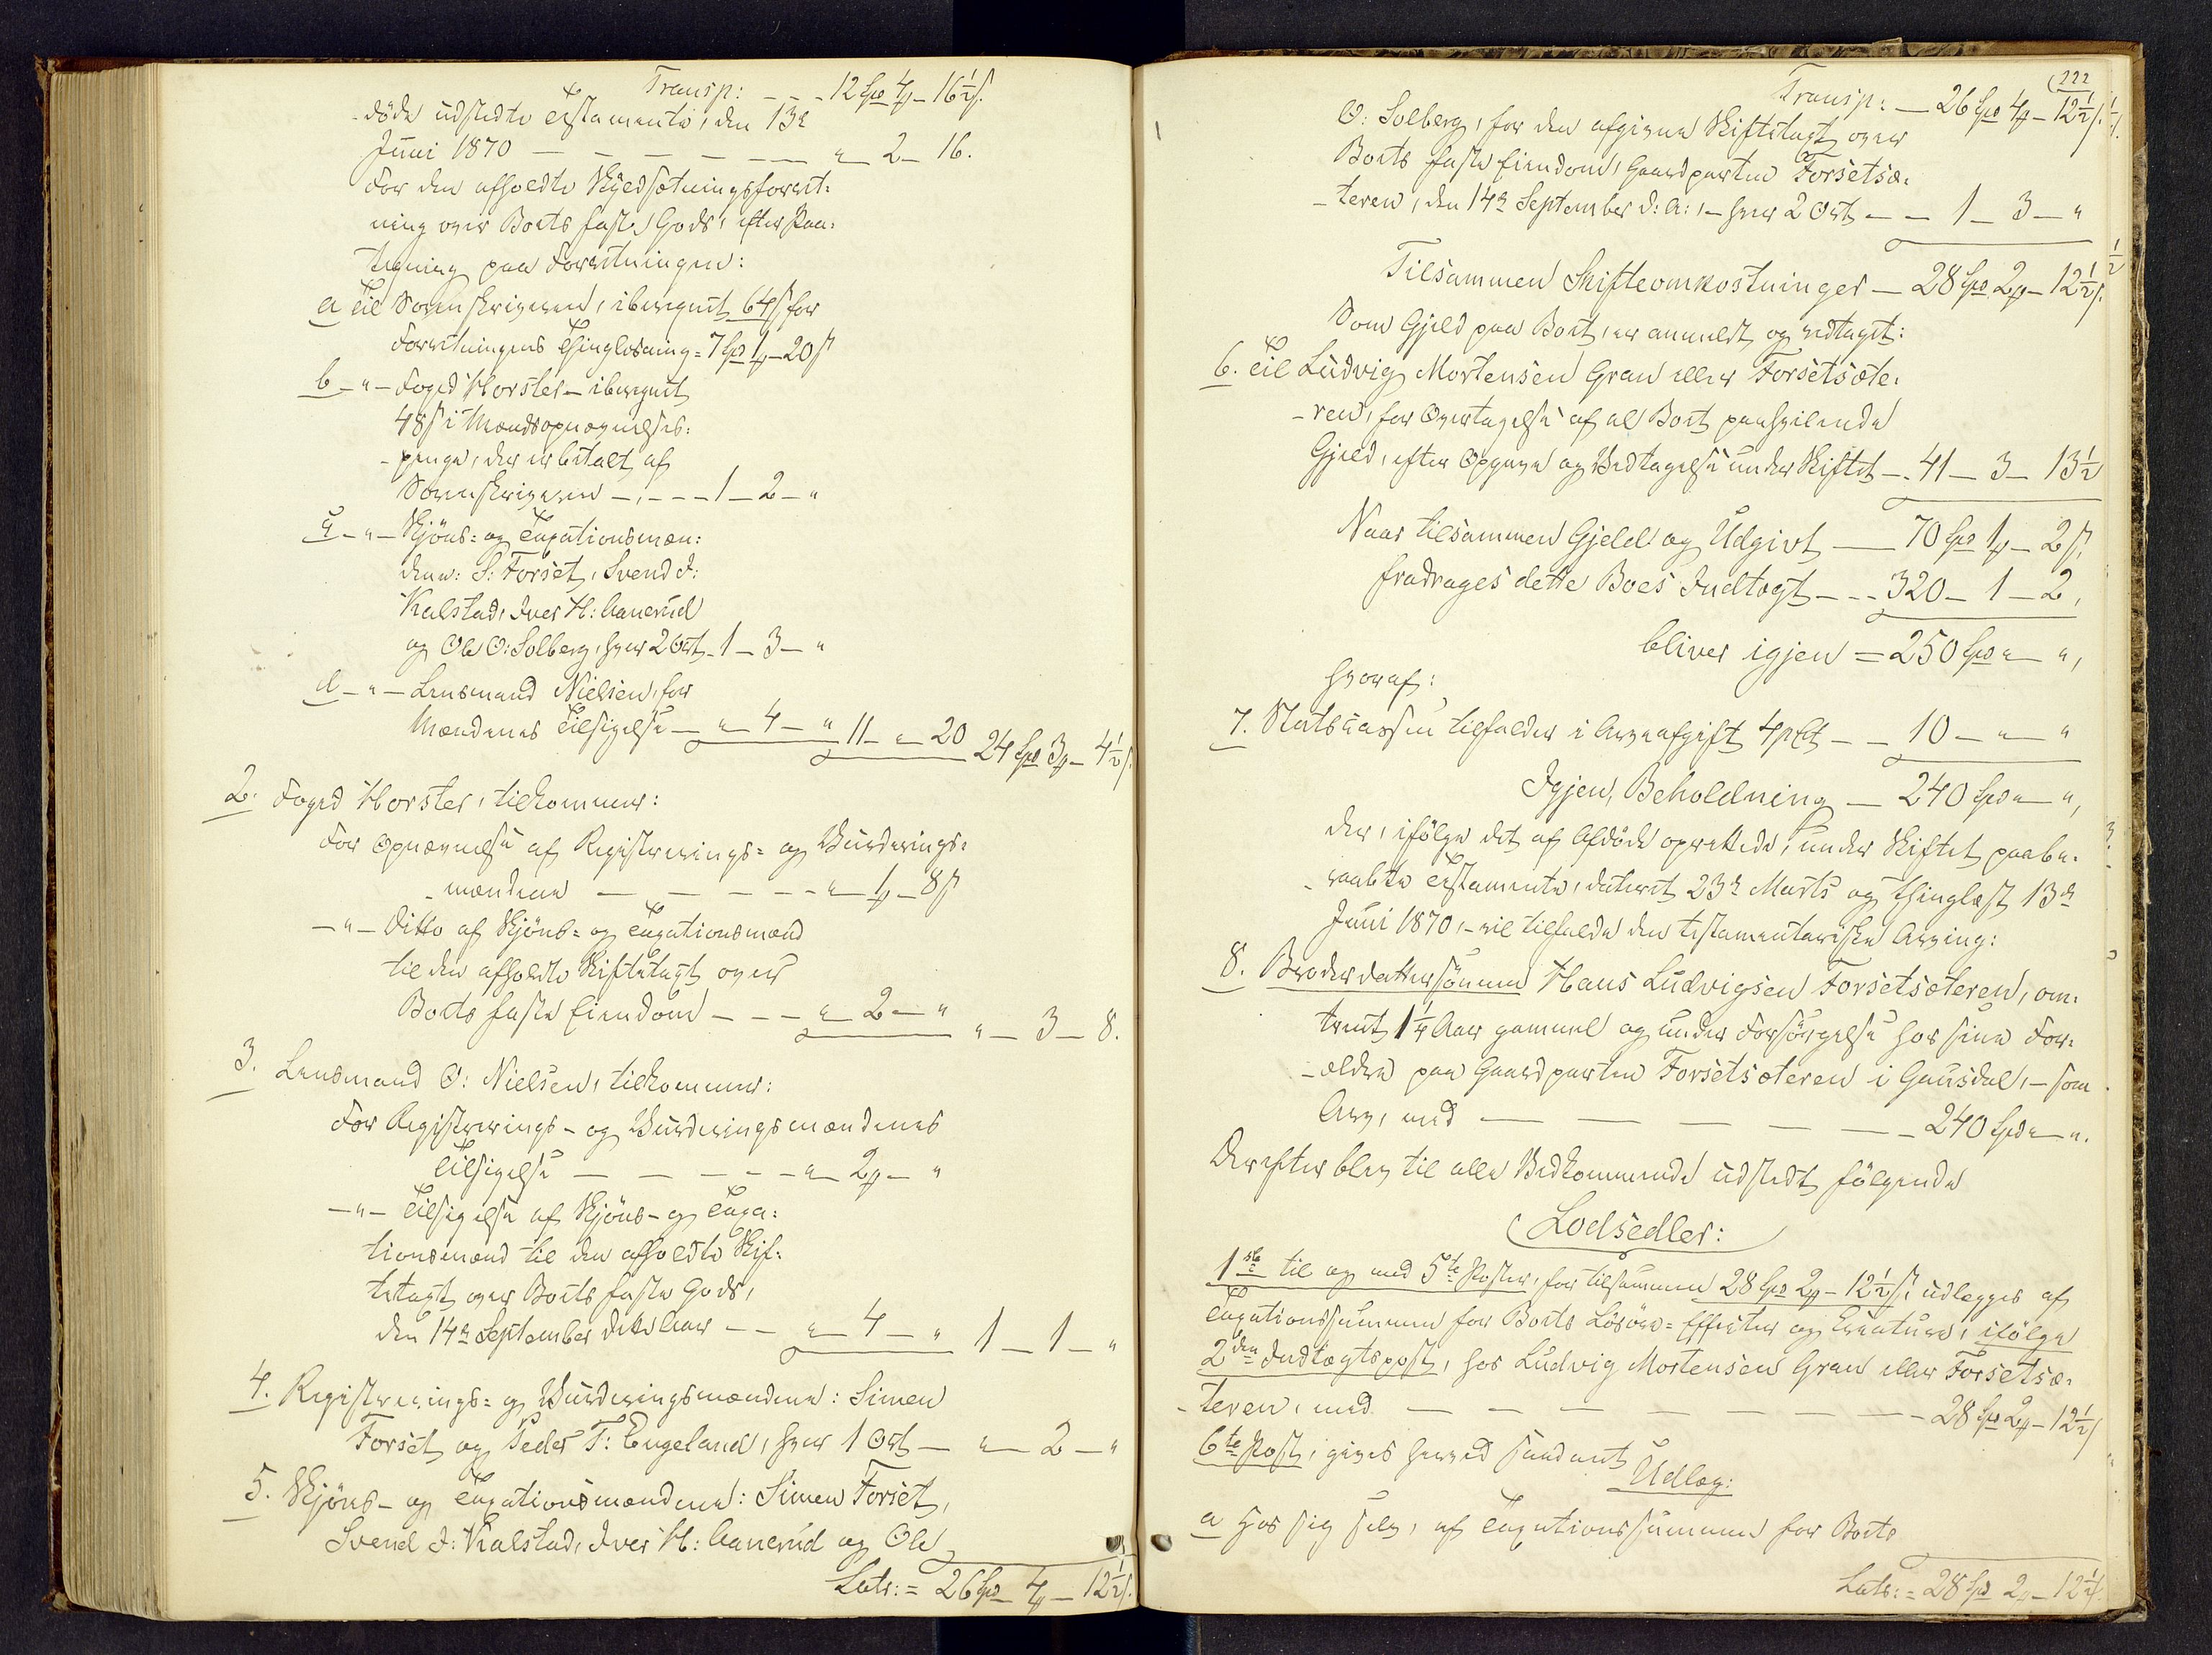 Transp: - - - 12 Spd 4 # - 16½ s.
døde udstedte Testamente, den 13de
Juni 1870 — — — — — " 2 - 16.
For den afholdte Skyldsætningsforret-
ning over Boets faste Gods, efter Paa-
tegning paa Forretningen:
a Til Sorenskriveren, iberegnet 64 s for
Forretningens Thinglæsning = 7 Spd 1 # - 20 s
b - " - Foged Horster - iberegnet
48 s i Mændsopnævnelses-
penge, der er betalt af
Sorenskriveren - - - - 1 - 2 - "
c - " - Skjöns- og Taxationsmæn-
dene: S: Forset, Svend J:
Kalstad, Iver H: Aanerud
og Ole O: Solberg, hver 2 Ort - 1 - 3 - "
d - " - Lensmand Nielsen, for
Mændenes Tilsigelse - " - 4 - " 11 - " - 20 24 Spd 3 # - 4½ s.
2. Foged Horster, tilkommer:
For Opnævnelse af Registrerings- og Vurderings-
mændene — — — - - " - 1 # - 8 s
- " - Ditto af Skjöns- og Taxationsmænd
til den afholdte Skiftetaxt over
Boets faste Eiendom - - - " - 2 - " " - 3 - 8.
3. Lensmand O: Nielsen, tilkommer:
For Registrerings- og Vurderingsmændenes
Tilsigelse — — — - - " - 2 # - "
- " - Tilsigelse af Skjöns- og Taxa-
tionsmænd til den afholdte Skif-
tetaxt over Boets faste Gods,
den 14de September dette Aar - - " - 4 - " 1 - 1 - "
4. Registrerings- og Vurderingsmændene: Simen
Forset og Peder T: Engeland, hver 1 Ort — " — 2 — "
5. Skjöns- og Taxationsmændene: Simen Forset,
Svend J: Kalstad, Iver H: Aanerud og Ole
Lats: = 26 Spd 4 # - 12½ s.
222
Transp: — 26 Spd 4 # - 12½ s.
O: Solberg, for den afgivne Skiftetaxt over
Boets faste Eiendom, Gaardparten Forsetsæ-
teren, den 14de September d: A:, - hver 2 Ort - - 1 - 3 - "
Tilsammen Skifteomkostninger — 28 Spd 2 # - 12½ s.
Som Gjeld paa Boet, er anmeldt og vedtaget:
6. Til Ludvig Mortensen Gran eller Forsetsæte-
ren, for Overtagelse af al Boet paahvilende
Gjeld, efter Opgave og Vedtagelse under Skiftet - - 41 - 3 - 13½
Naar tilsammen Gjeld og Udgivt — 70 Spd 1 # - 2 s,
fradrages dette Boes Indtægt - - - 320 - 1 - 2,
bliver igjen = 250 Spd " - ",
hvoraf:
7. Statscassen tilfalder i Arveafgift 4 pCt - - 10 - " - "
Igjen, Beholdning — 240 Spd " - ",
der, ifölge det af Afdöde oprettede, under Skiftet paabe-
raabte Testamente, dateret 23de Marts og thinglæst 13de
Juni 1870, - vil tilfalde den testamentariske Arving:
8. Broderdattersönnen Hans Ludvigsen Forsetsæteren, om-
trent 1¼ Aar gammel og under Forsörgelse hos sine For-
ældre paa Gaardparten Forsetsæteren i Gausdal, - som
Arv, med — — — — — - - 240 Spd " - ".
Derefter blev til alle Vedkommende udstedt fölgende
Lodsedler:
1ste til og med 5te Poster, for tilsammen 28 Spd 2 # - 12½ s, udlægges af
Taxationssummen for Boets Lösöre-Effecter og Creature, ifölge
2den Indtægtspost, hos Ludvig Mortensen Gran eller Forsetsæ-
teren, med — — — — — — - 28 Spd 2 # - 12½ s
6te Post, gives herved saadant
Udlæg:
a Hos sig selv, af Taxationssummen for Boets
Lats: = 28 Spd 2 # - 12½ s.